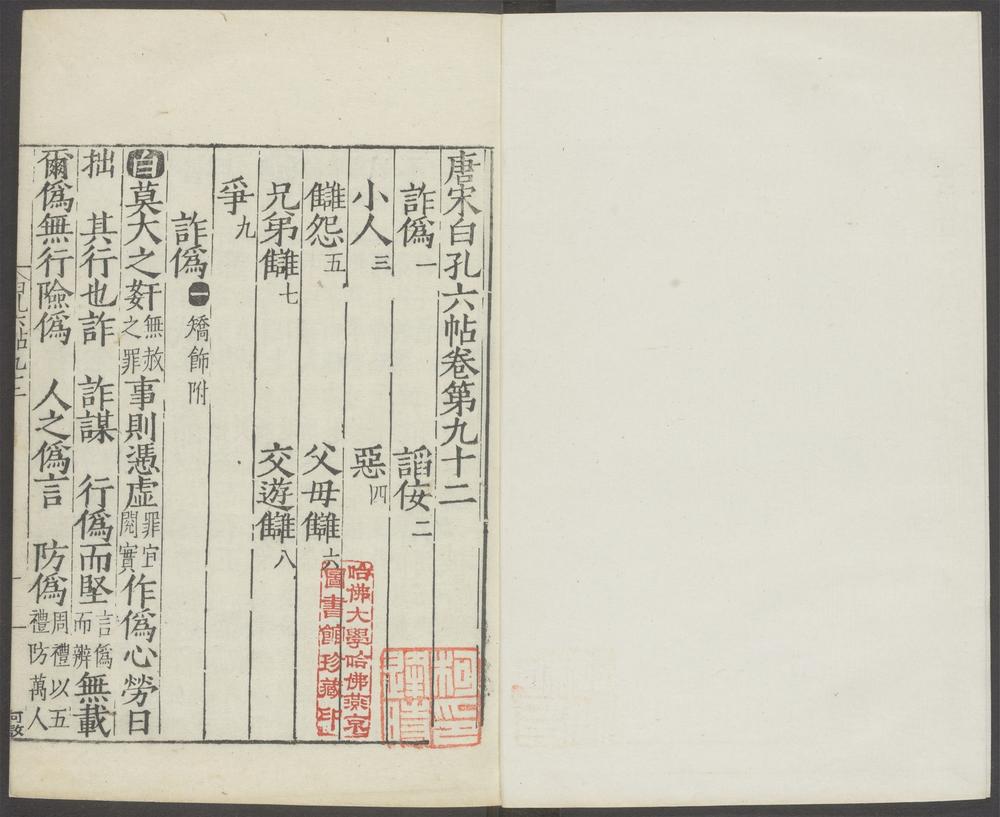 唐宋白孔六帖卷第九十二
詐僞一 諂佞二
小人三 惡四
讎怨五 父母讎六
兄弟讎七 交遊讎八
爭九
詐僞一 矯飾附
白 莫大之姦 無赦之罪 事則憑虛 罪宜閱實 作僞心勞日
拙 其行也詐 詐謀 行僞而堅 言僞而辨 無載
爾僞無行險僞 人之僞言 防僞 周禮以五禮防萬人
白孔六帖九十二
一
哈佛大學哈佛燕京
圖書館珍藏印